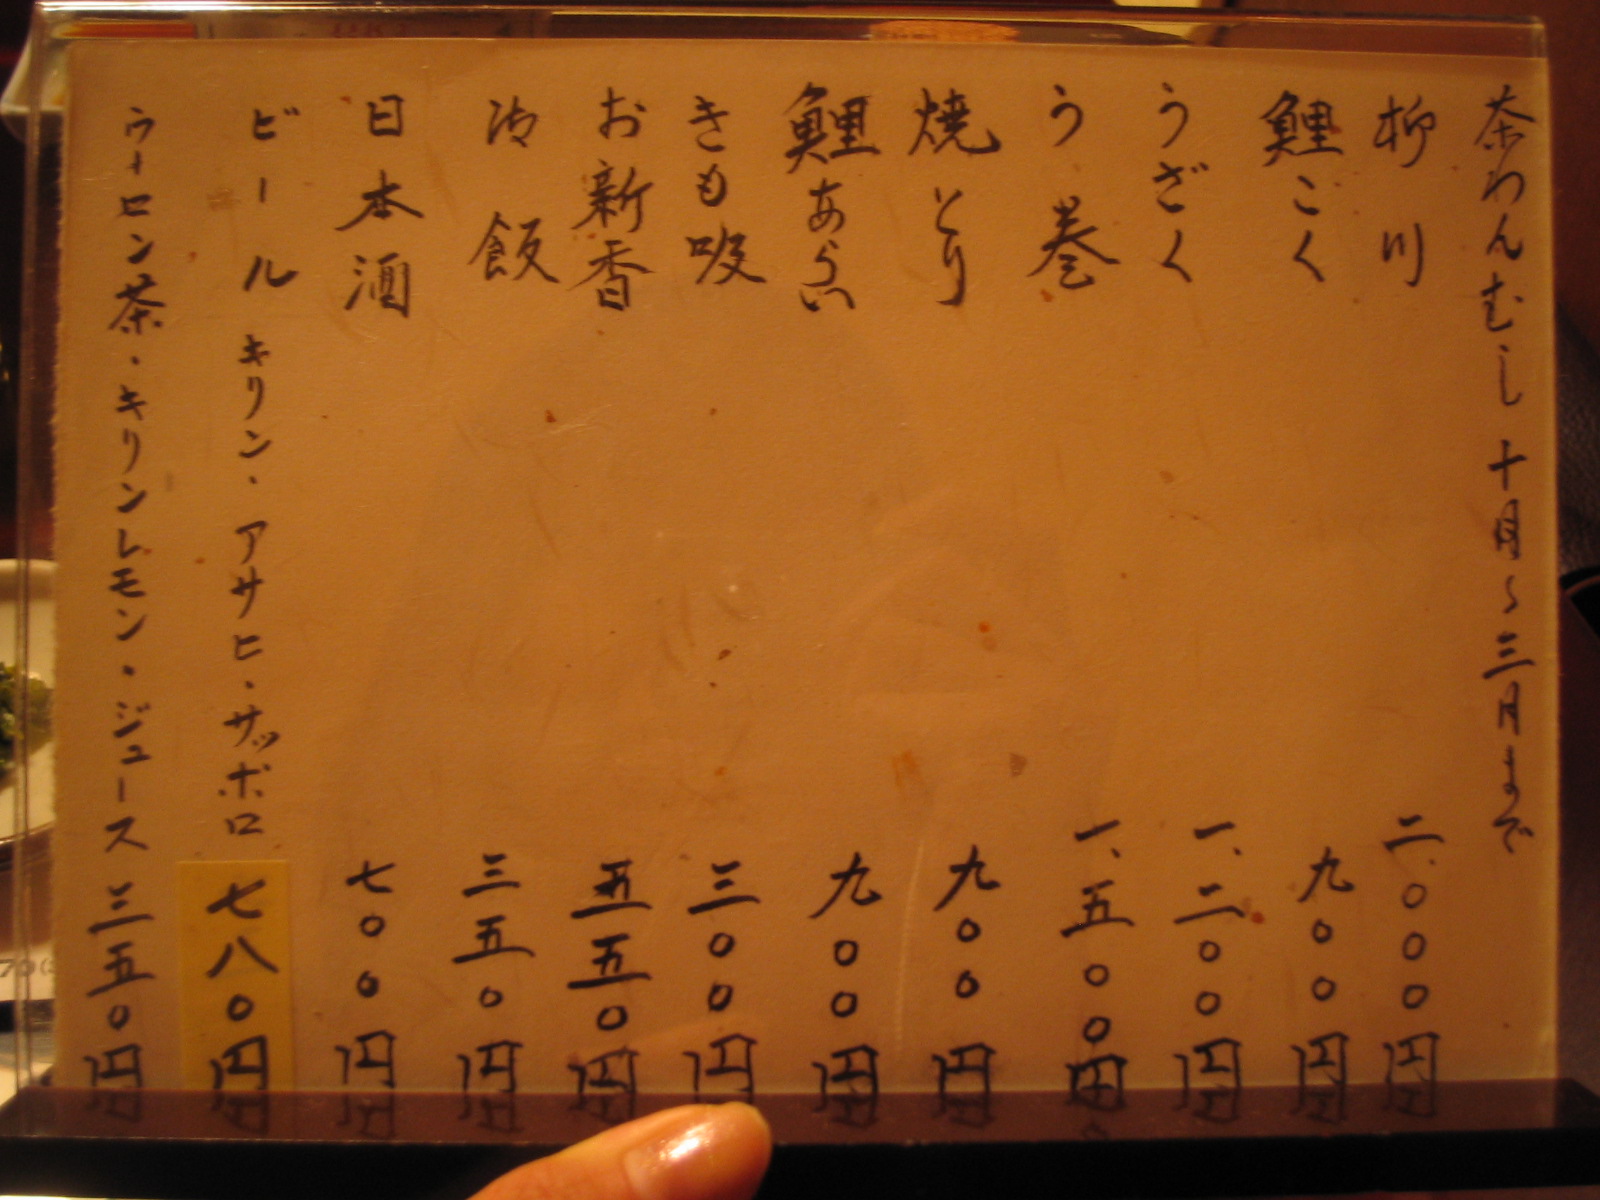 茶わんむし 十月〜三月まで
柳川 二、〇〇〇円
鯉こく 九〇〇円
うざく 一、二〇〇円
う巻 一、五〇〇円
焼とり 九〇〇円
鯉あらい 九〇〇円
きも吸 三〇〇円
お新香 五五〇円
冷飯 三五〇円
日本酒 七〇〇円
ビール キリン・アサヒ・サッポロ 七八〇円
ウーロン茶・キリンレモン・ジュース 三五〇円